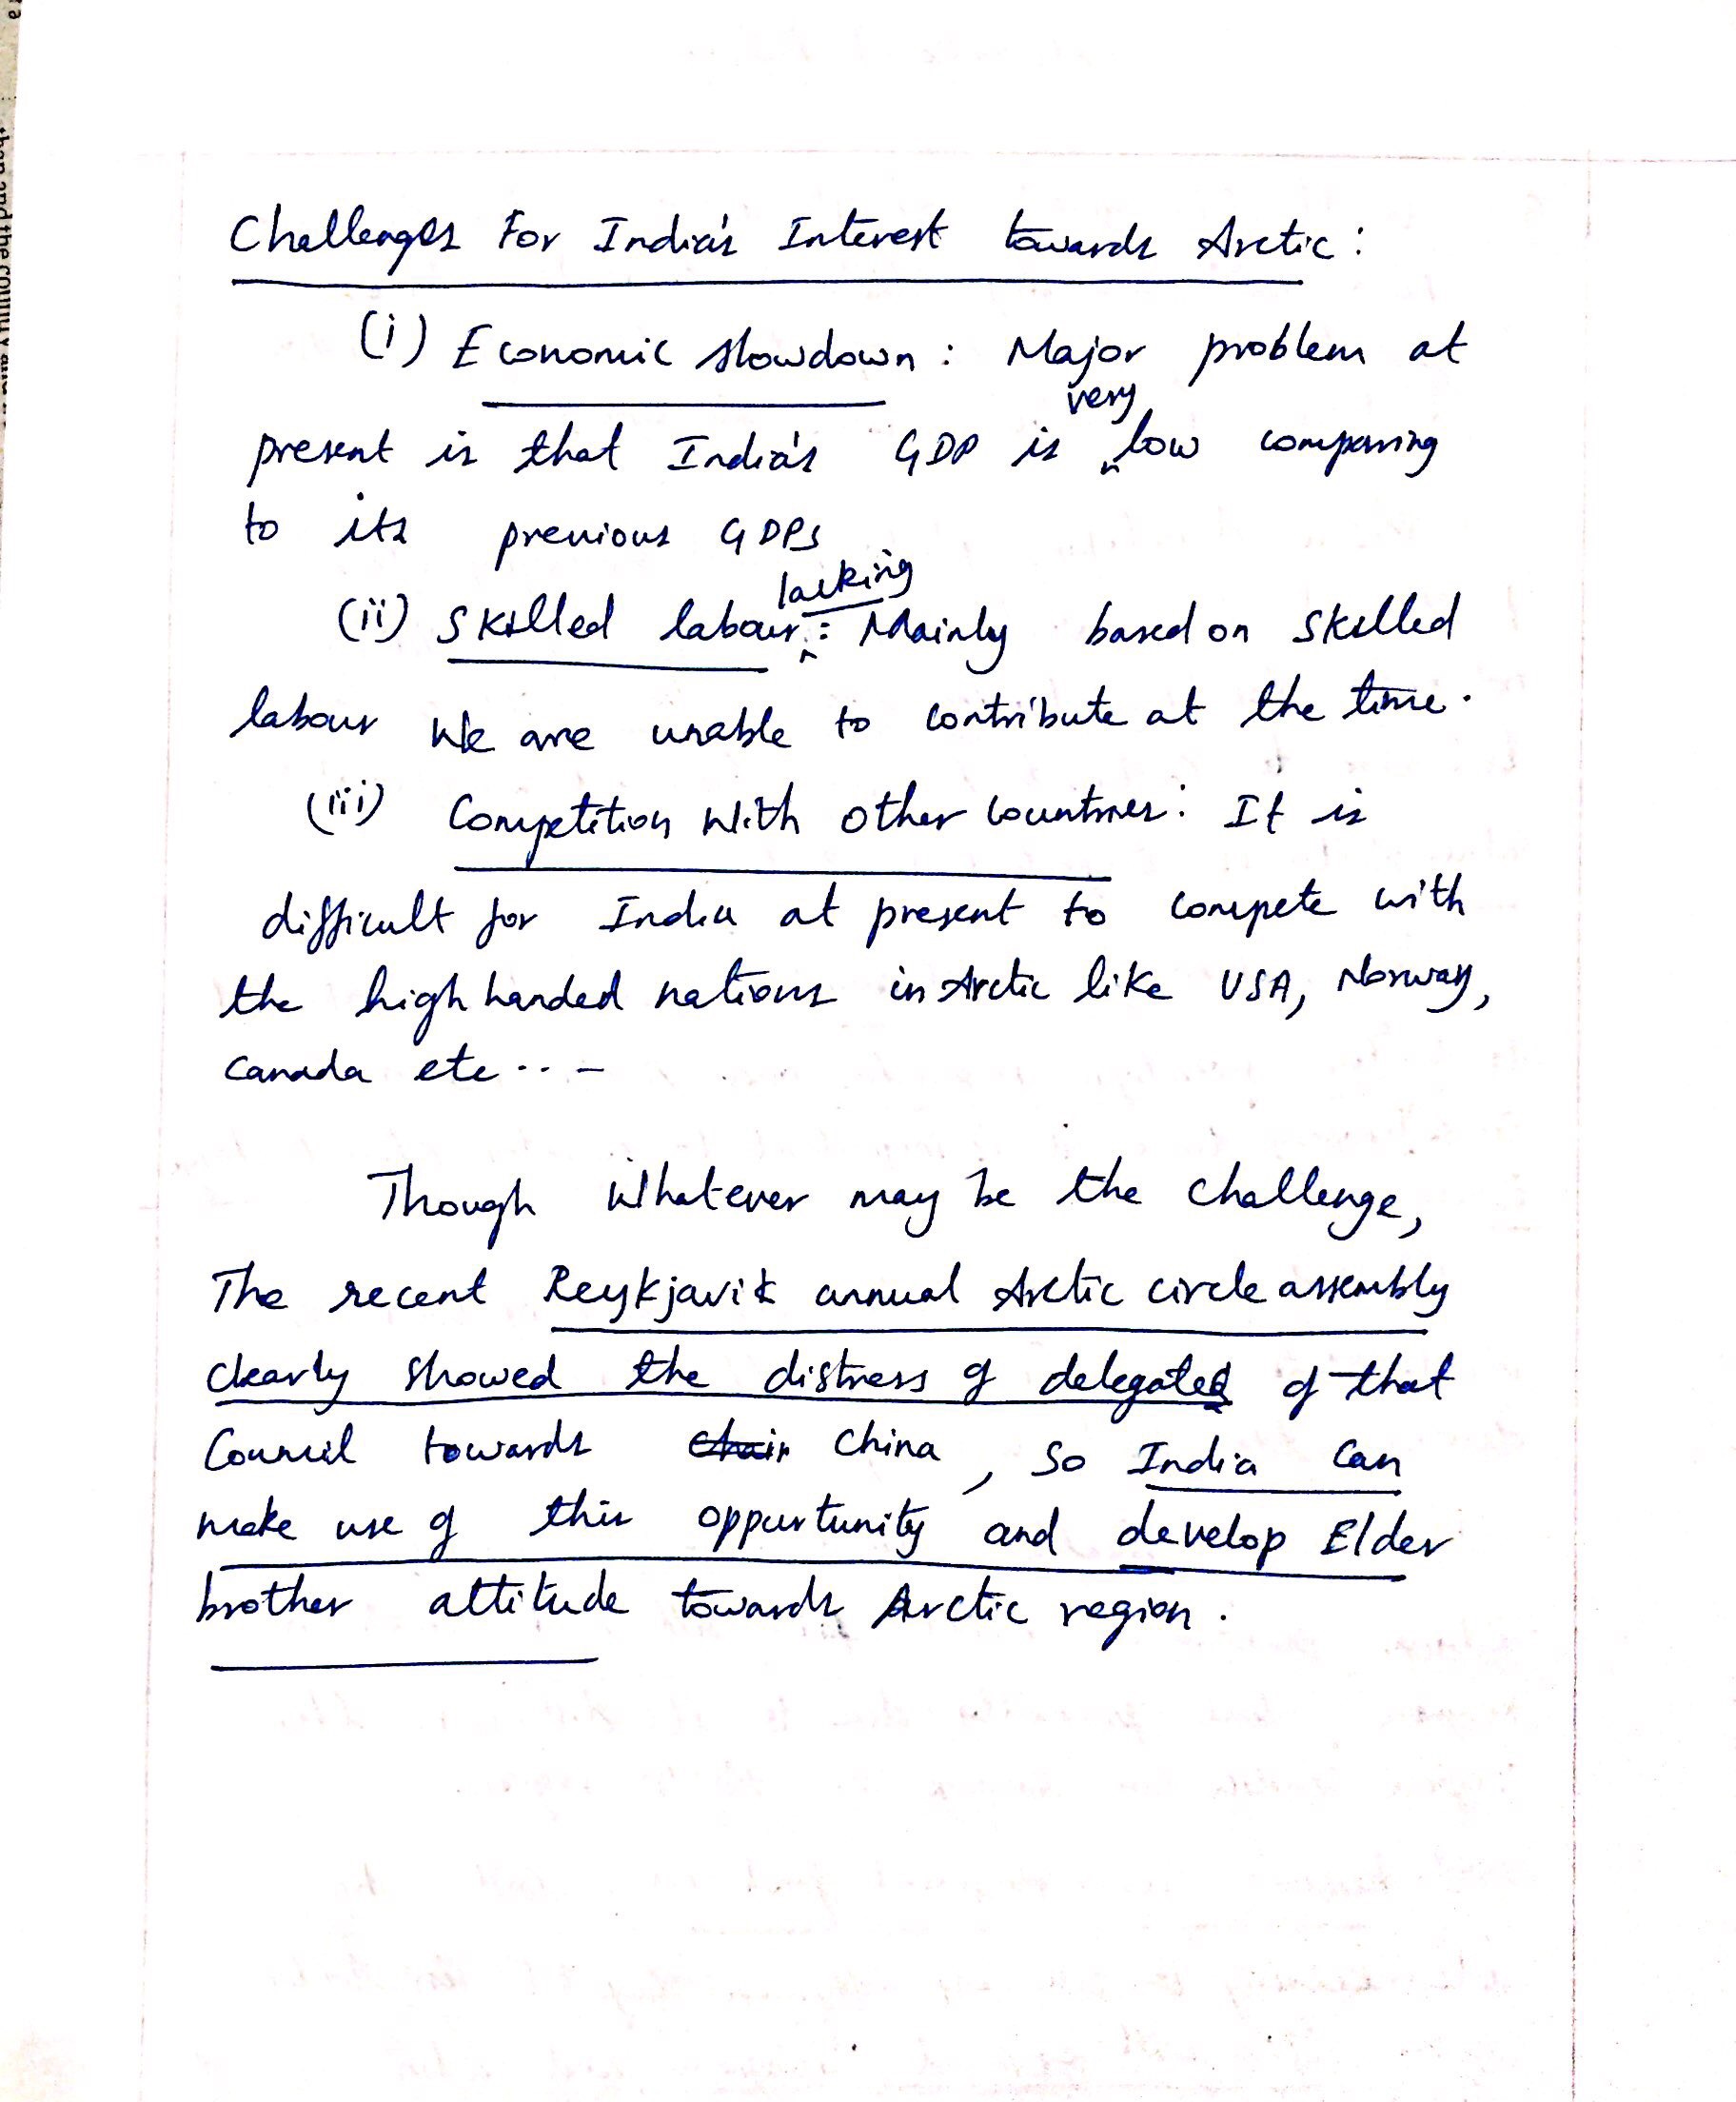 Challenges For India's Interest towards Arctic:
(i) Economic slowdown: Major problem at
present is that India's GDP is very low comparing
to its previous GDPs
(ii) Skilled labour lacking: Mainly based on skilled
labour We are unable to contribute at the time.
(iii) Competition With other countries: It is
difficult for India at present to compete with
the high handed nations in Arctic like USA, Norway,
Canada etc...-
Though Whatever may be the challenge,
The recent Reykjavik annual Arctic circle assembly
clearly showed the distress of delegates of that
Council towards China, So India Can
make use of this oppurtunity and develop Elder
brother attitude towards Arctic region.